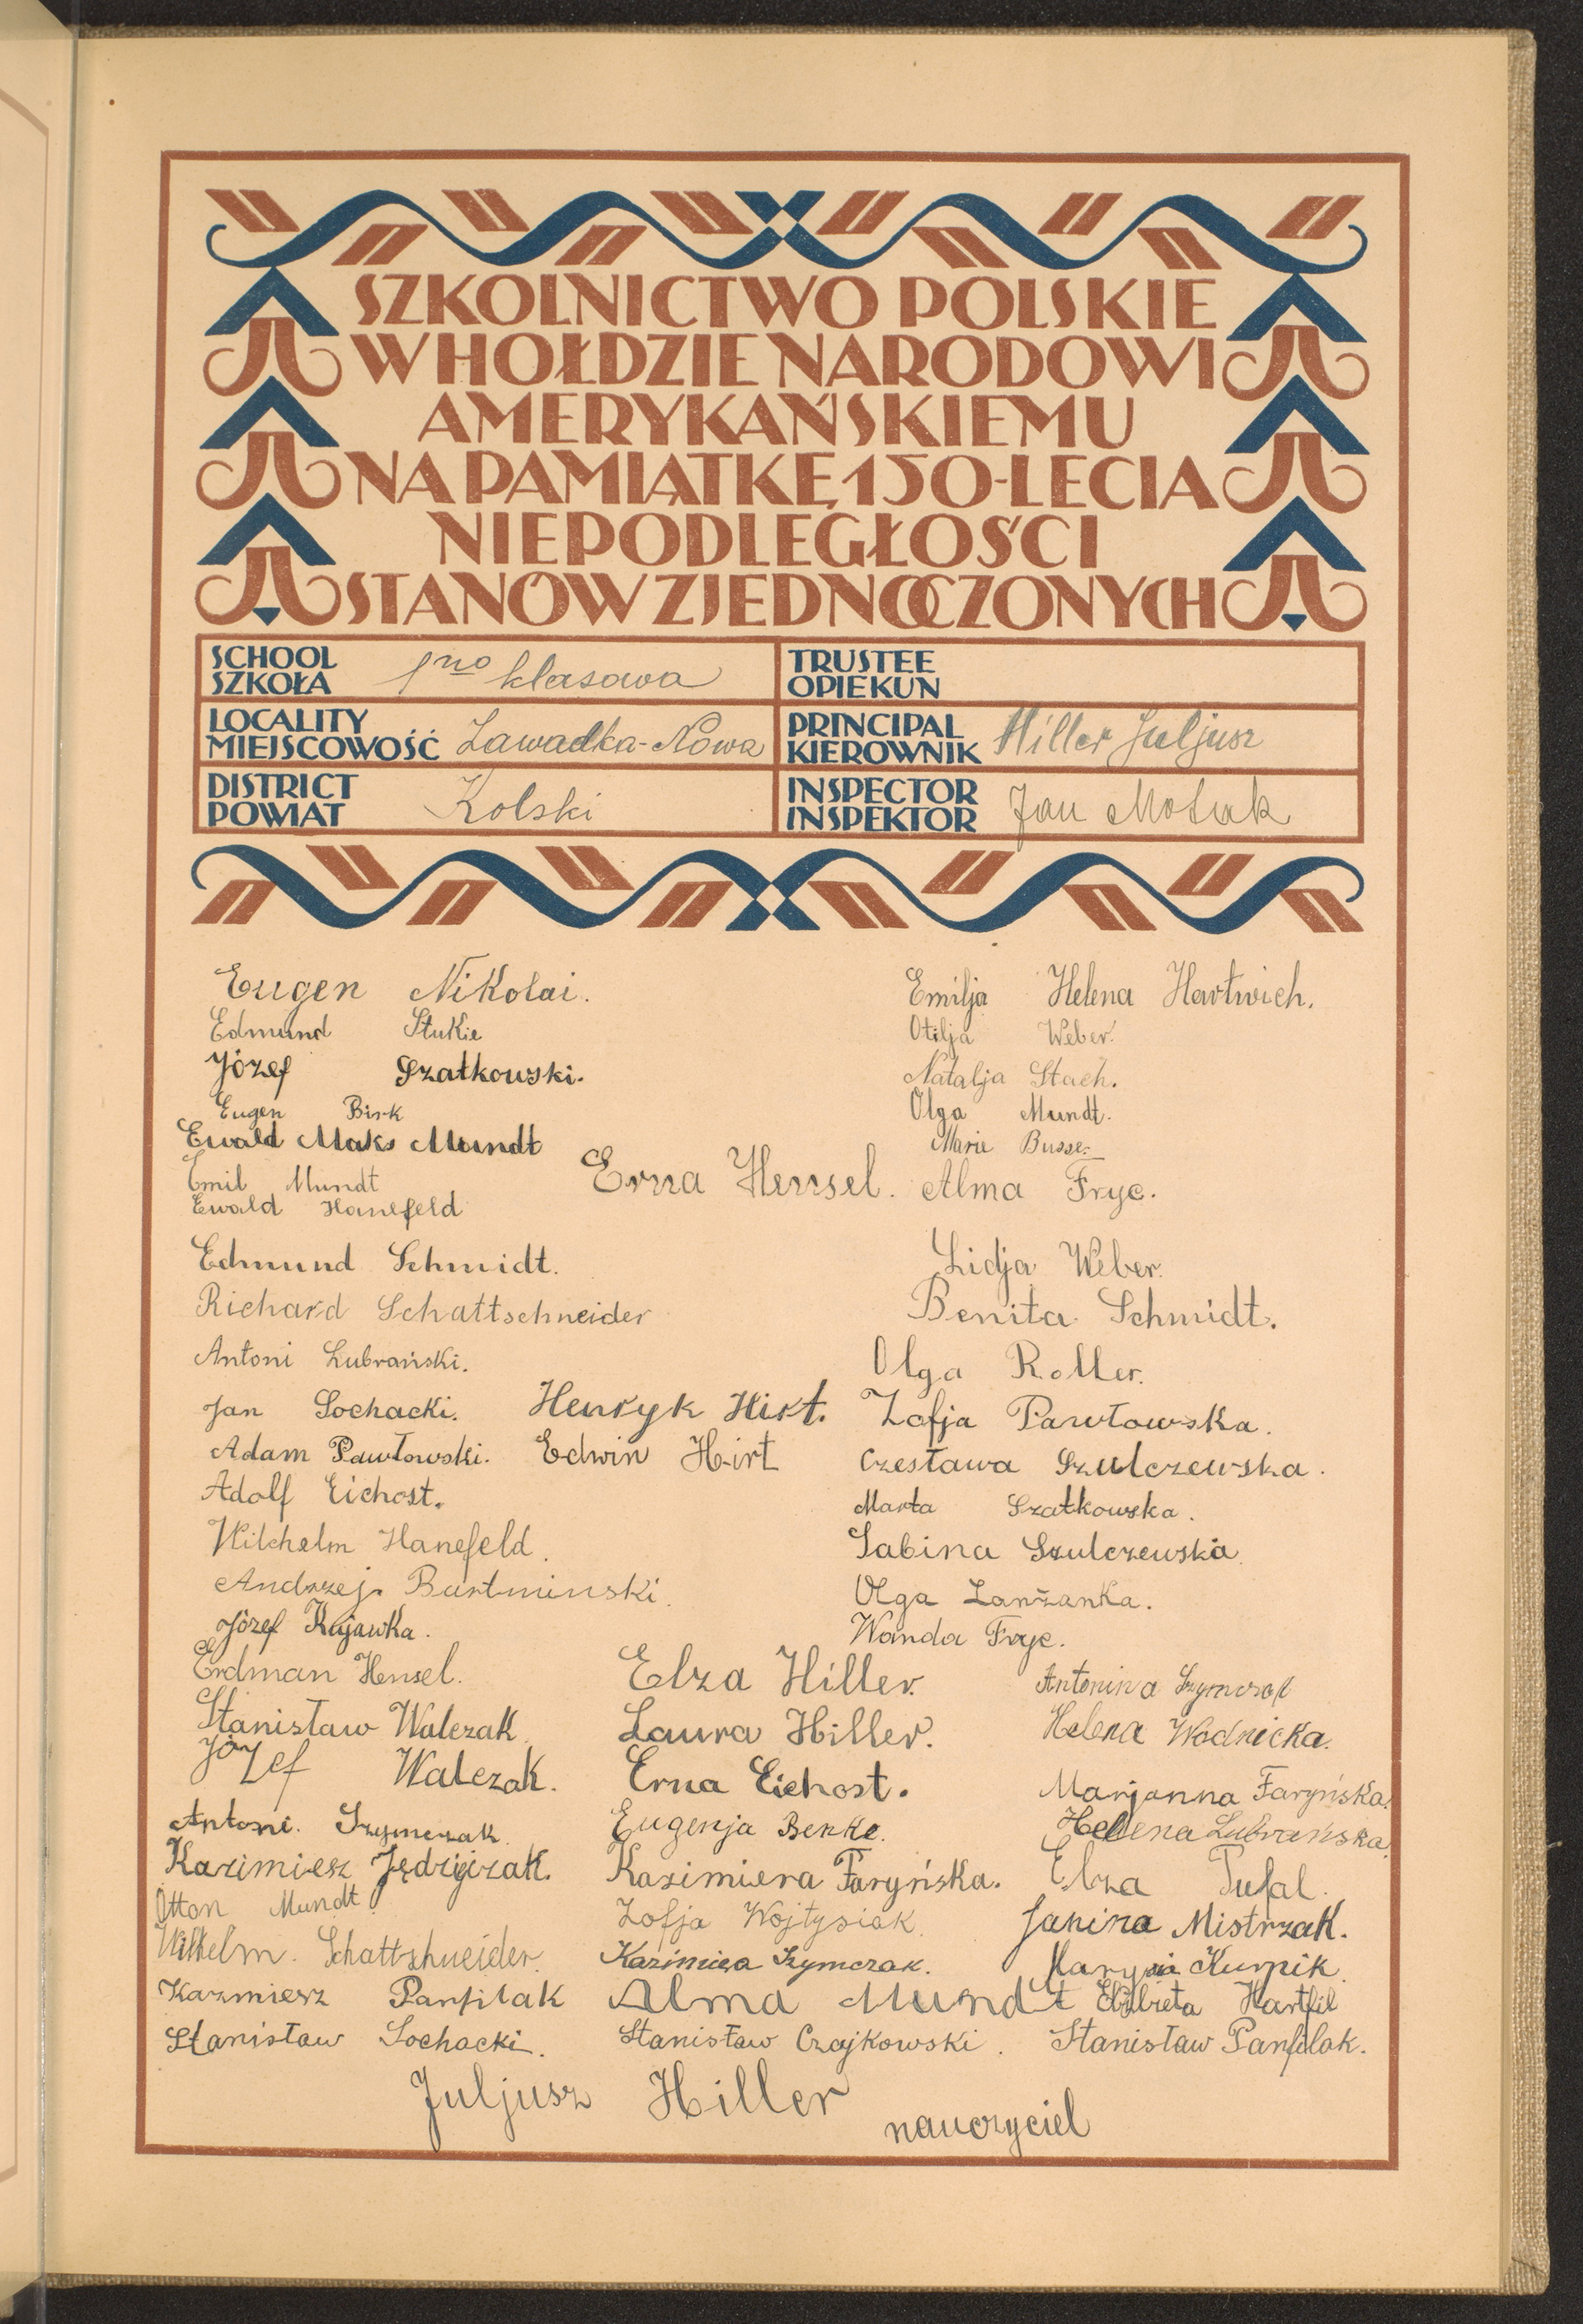 SZKOLNICTWO POLSKIE
W HOŁDZIE NARODOWI
AMERYKAŃSKIEMU
NA PAMIĄTKĘ 150-LECIA
NIEPODLEGŁOŚCI
STANÓW ZJEDNOCZONYCH
SCHOOL
SZKOŁA 1no klasowa
TRUSTEE
OPIEKUN
LOCALITY
MIEJSCOWOŚĆ Zawadka-Nowa
PRINCIPAL
KIEROWNIK Hiller Juljusz
DISTRICT
POWIAT Kolski
INSPECTOR
INSPEKTOR Jan
Eugen Nikolai.
Edmund Stukie
Józef Szatkowski.
Eugen Birk
Ewald Maks Mundt
Emil Mundt
Ewald Hanefeld
Edmund Schmidt.
Richard Schattschneider
Antoni Lubrański.
Jan Sochacki.
Adam Pawłowski.
Adolf Eichost.
Wilchelm Hanefeld.
Andrzej Bartminski.
Józef Kujawka.
Erdman Hensel.
Stanisław Walczak
Józef Walczak.
Antoni. Szymczak.
Kazimiesz Jędrzejczak.
Otton Mundt
Wilhelm. Schattshneider.
Kazmierz Panfilak
Stanisław Sochacki.
Erna Hensel.
Henryk Hirt.
Edwin Hirt
Elza Hiller.
Laura Hiller.
Erna Eichost.
Eugenja Benke.
Kazimiera Faryńska.
Zofja Wojtysiak.
Kazimiea Szymczak.
Alma Mundt
Stanisław Czajkowski.
Emilja Helena Hartwich.
Otilja Weber.
Natalja Stach.
Olga Mundt.
Marie Busse.
Alma Fryc.
Lidja Weber.
Benita Schmidt.
Olga Roller.
Zofja Pawłowska.
Czesława Szulczewska.
Marta Szatkowska.
Sabina Szulczewska
Olga Lanżanka.
Wanda Fryc.
Antonina Szymczak
Helena Wodnicka.
Marjanna Faryńska.
Helena Lubrańska.
Elza Tufal.
Janina Mistrzak.
Marysia Kurpik.
Elżbieta Hartfil
Stanisław Panfilak.
Juljusz Hiller
nauczyciel